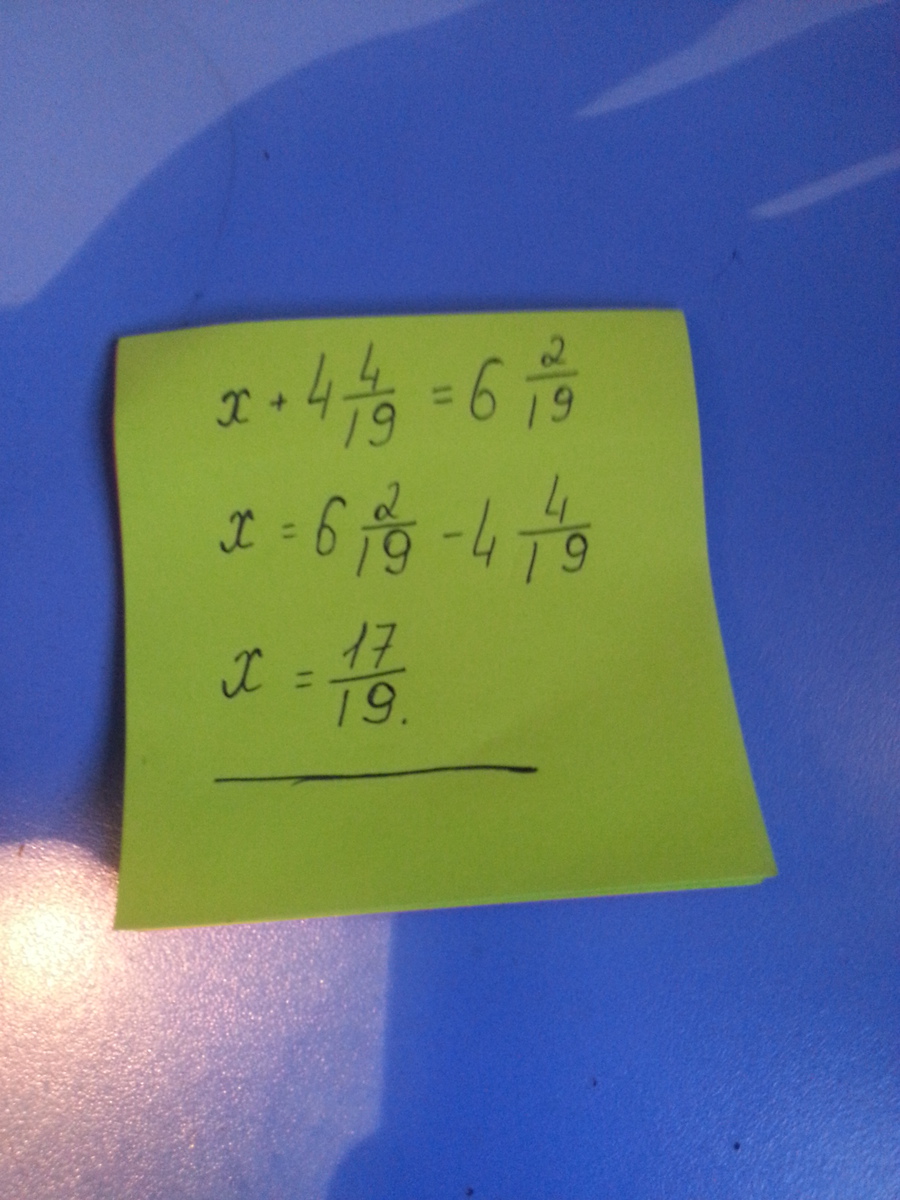 x + 4 4/19 = 6 2/19
x = 6 2/19 - 4 4/19
x = 17/19.